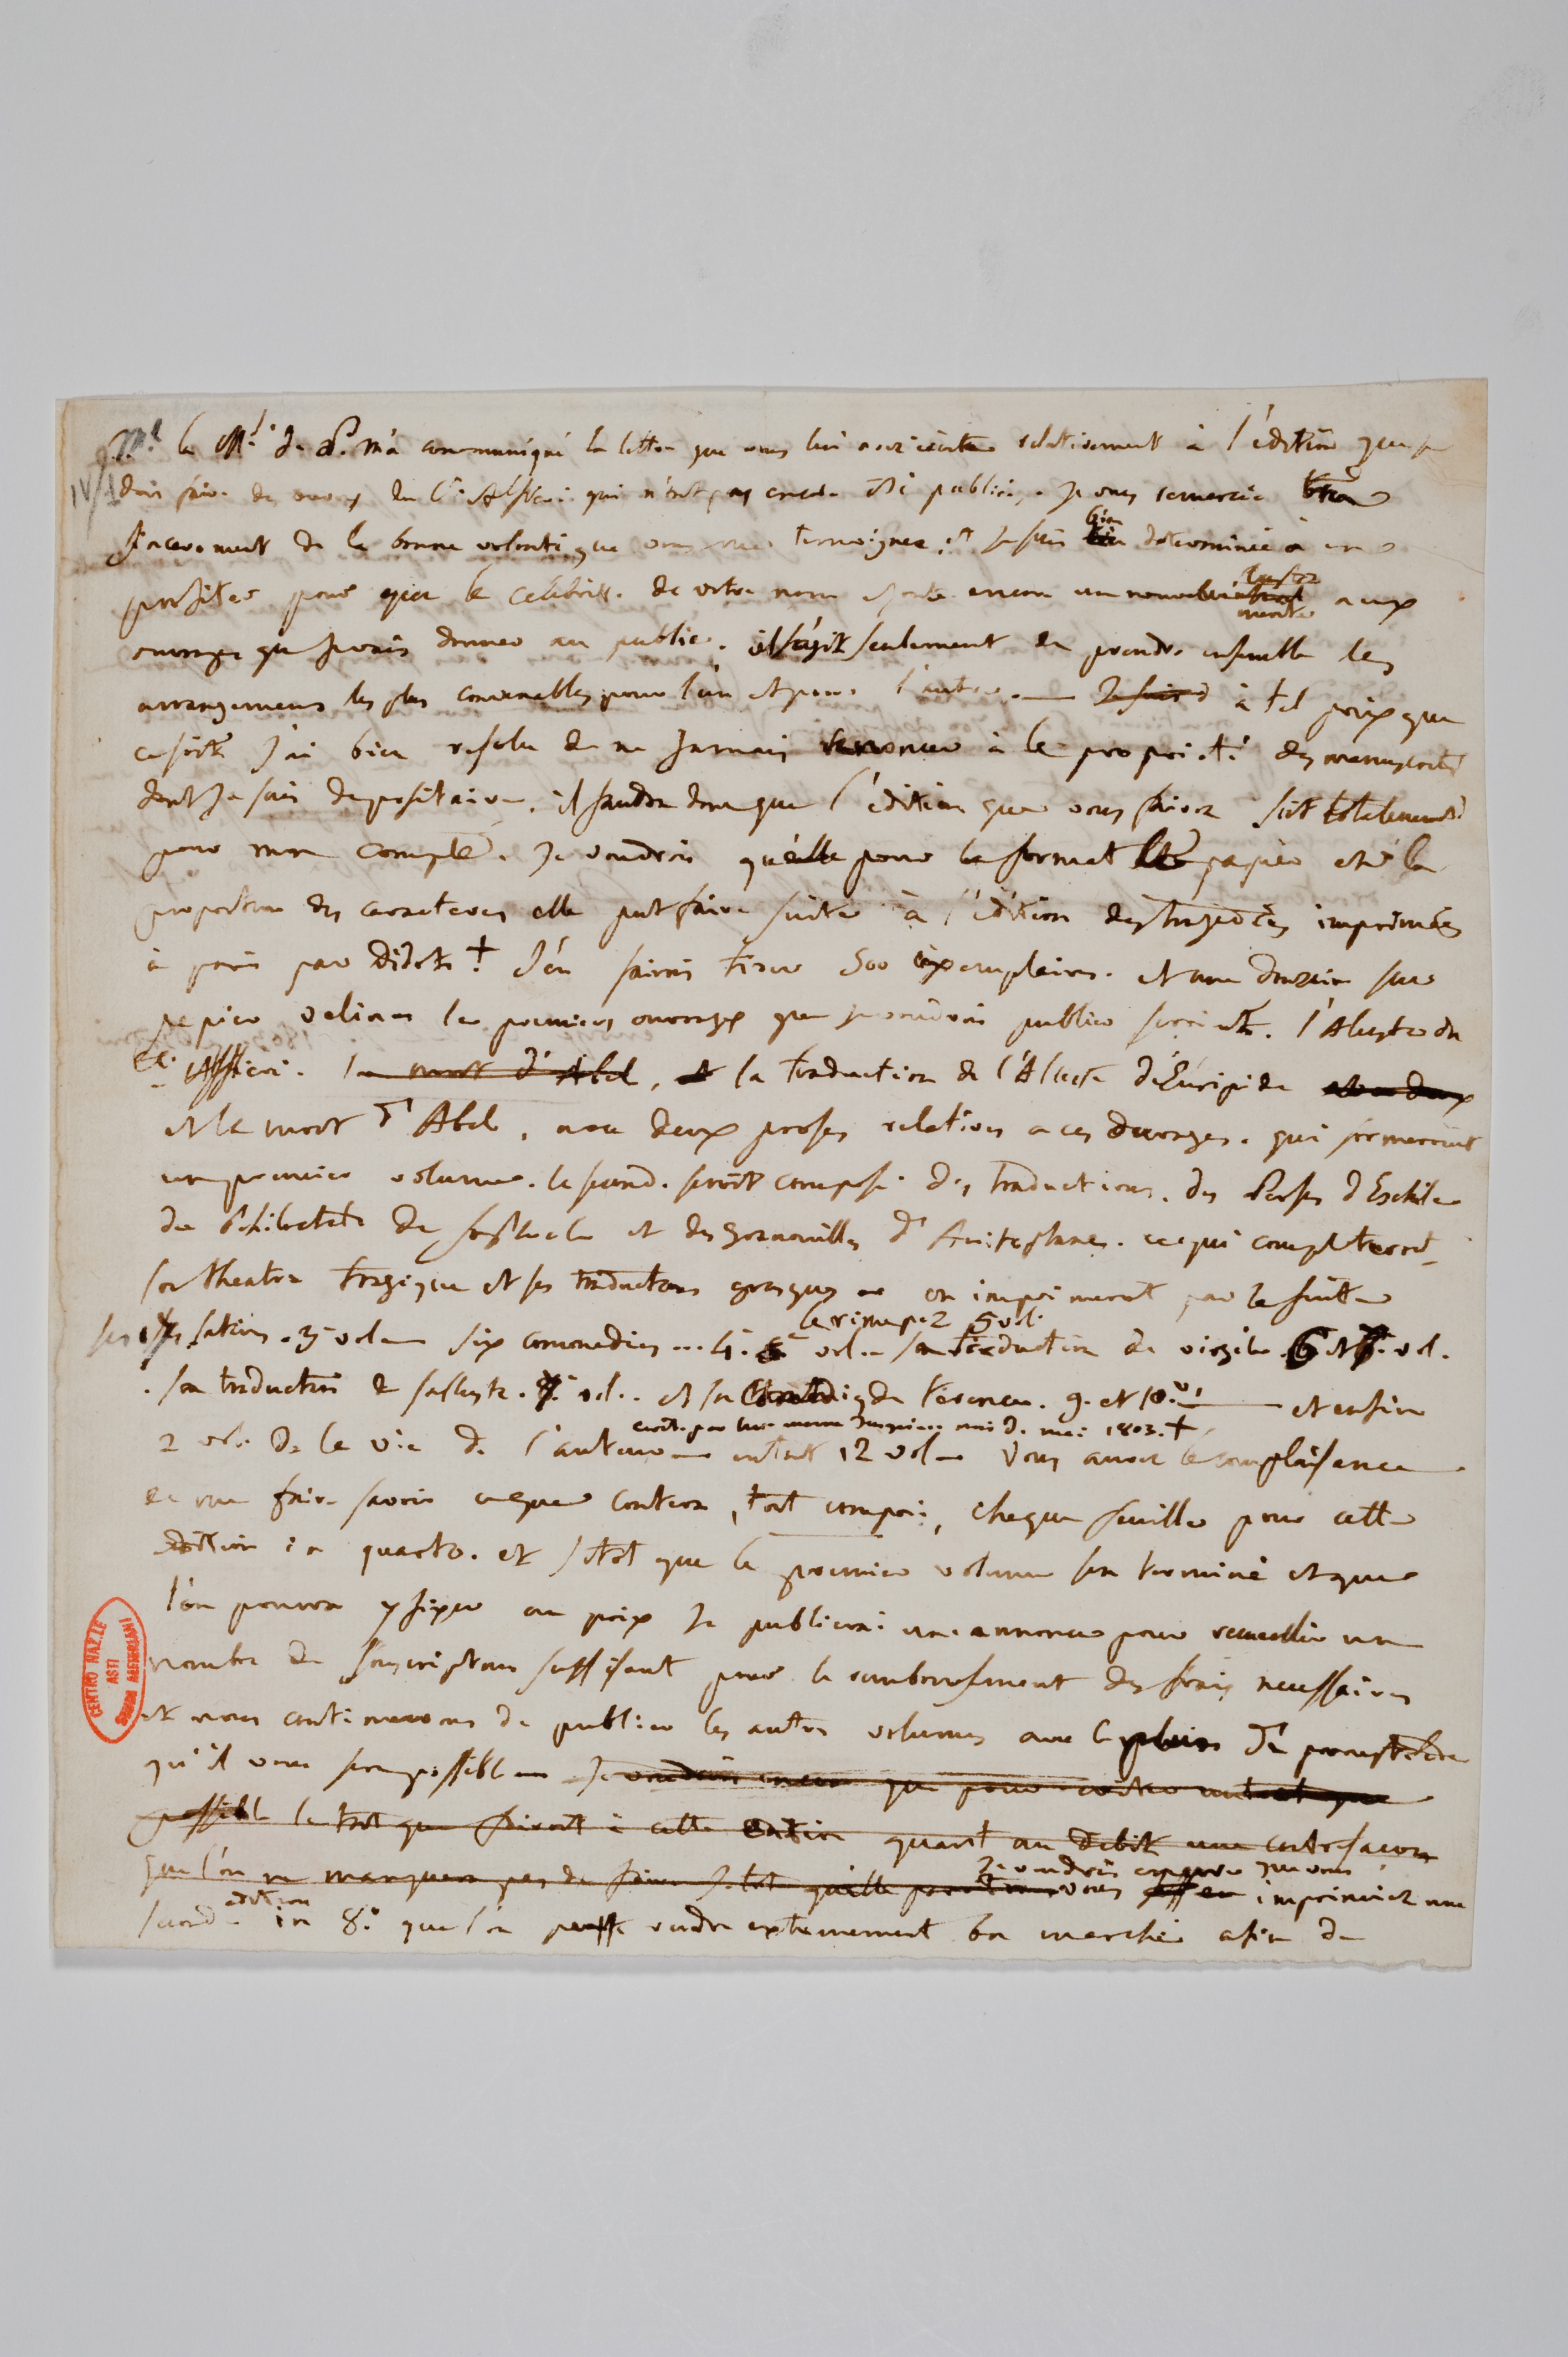 Mr. le Mis. de P. m'a communiqué la lettre que vous lui avez écrite relativement à l'édition que je
IV/1
dois faire des ouvrages du Cte. Alfieri qui n'ont pas encore été publiés. Je vous remercie bien
sincerement de la bonne volonté que vous me temoignez. et je suis bien determinée à en
profiter pour que la celebrité de votre nom ajoute encore un nouveau lustre aux
ouvrages que je vais donner au public. il s'agit seulement de prendre ensemble les
arrangemens les plus convenables pour l'un et pour l'autre. Je suis à tel prix que
ce soit J'ai bien resolu de ne jamais renoncer à la proprieté des manuscrits
dont Je suis depositaire. il faudra donc que l'édition que vous ferez soit totalement
pour mon compte. Je voudrois qu'elle pour le format le papier et la
proportion des caracteres elle put faire suite à l'édition des tragedies imprimées
à paris par Didot + J'en ferois tirer 500 exemplaires. et une douzaine sur
papier velin les premiers ouvrages que je voudrois publier seroient. l'Alceste du
Cte. Alfieri. la mort d'Abel, et la traduction de l'Alceste d'Euripide
et la mort d'Abel, avec deux proses relatives a ces ouvrages. qui formeroient
un premier volume. le second. seroit composé des traductions. des Perses d'Eschile
du Philoctete de Sophocle et des Grenouilles d'Aristophanes. ce qui completeroit
son theatre tragique et ses traductions grecques on imprimeroit par la suite
ses satires. 3 vol six commedies 4. vol. sa traduction de virgile 6 et 7. vol.
le rime p. 2 5 vol.
sa traduction de salluste. vol. et sa de Terence. 9. et 10. et enfin
ecrite par lui meme jusqu'au mois de mai 1803. +
2 vol. de la vie de l'auteur en tout 12 vol Vous aurez la complaisance
de me faire savoir ce que coutera, tout compris, chaque feuille pour cette
édition in quarto. et sitot que le premier volume sera terminé et que
l'on pourra y fixer un prix Je publierai une annonce pour recueillir un
nombre de souscripteurs suffisant pour le rembousement des frais necessaires
et nous continuerons de publier les autres volumes avec le plus de promptitude
qu'il vous sera possible Je voudrois encore que pour eviter autant que
possible le tort que feroit à cette édition quant au debit une contrefaçon
que l'on ne manquera pas de faire sitot qu'elle paroitra vous imprimiez une
Je voudrois encore que vous
seconde edition in 8.o que l'on puisse vendre extremement bon marché afin de
CENTRO NAZ.LE
ASTI
STUDI ALFIERIANI